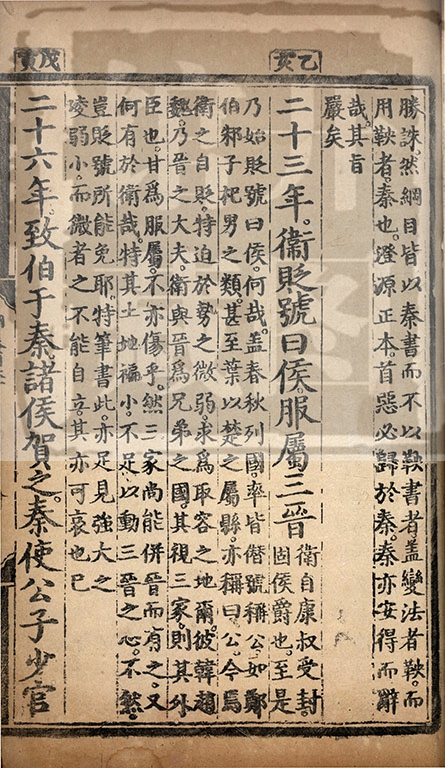 乙亥
勝誅。然綱目皆以秦書而不以鞅書者。蓋變法者鞅。而
用鞅者。秦也。澄源正本。首惡必歸於秦。秦亦安得而辭
哉。其旨
嚴矣
二十三年。衞貶號曰侯。服屬三晉
衛自康叔受封。
固侯爵也。至是
乃始貶號曰侯。何哉。蓋春秋列國。率皆僭號稱公。如鄭
伯邾子杞男之類。甚至葉以楚之屬縣。亦稱曰公。今焉
衛之自貶。特迫於勢之微弱。求爲取容之地爾。彼韓趙
魏。乃晉之大夫。衛與晉爲兄弟之國。其視三家。則其外
臣也。甘爲服屬。不亦傷乎。然三家尚能併晉而有之。又
何有於衛哉。特其土地褊小。不足以動三晉之心。不然。
豈貶號所能免耶。特筆書此。亦足見強大之
凌弱小。而微者之不能自立。其亦可哀也已
戊寅
二十六年。致伯于秦。諸侯賀之。秦使公子少官